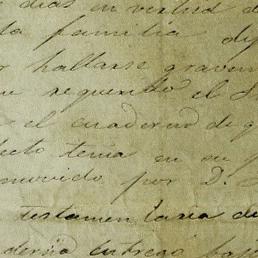 dias en virtud de
la familia
hallarse gravem
requerido el S
el cuaderno de q
tenia en su p
movido por D.
Testamentaria de
entrego bajo